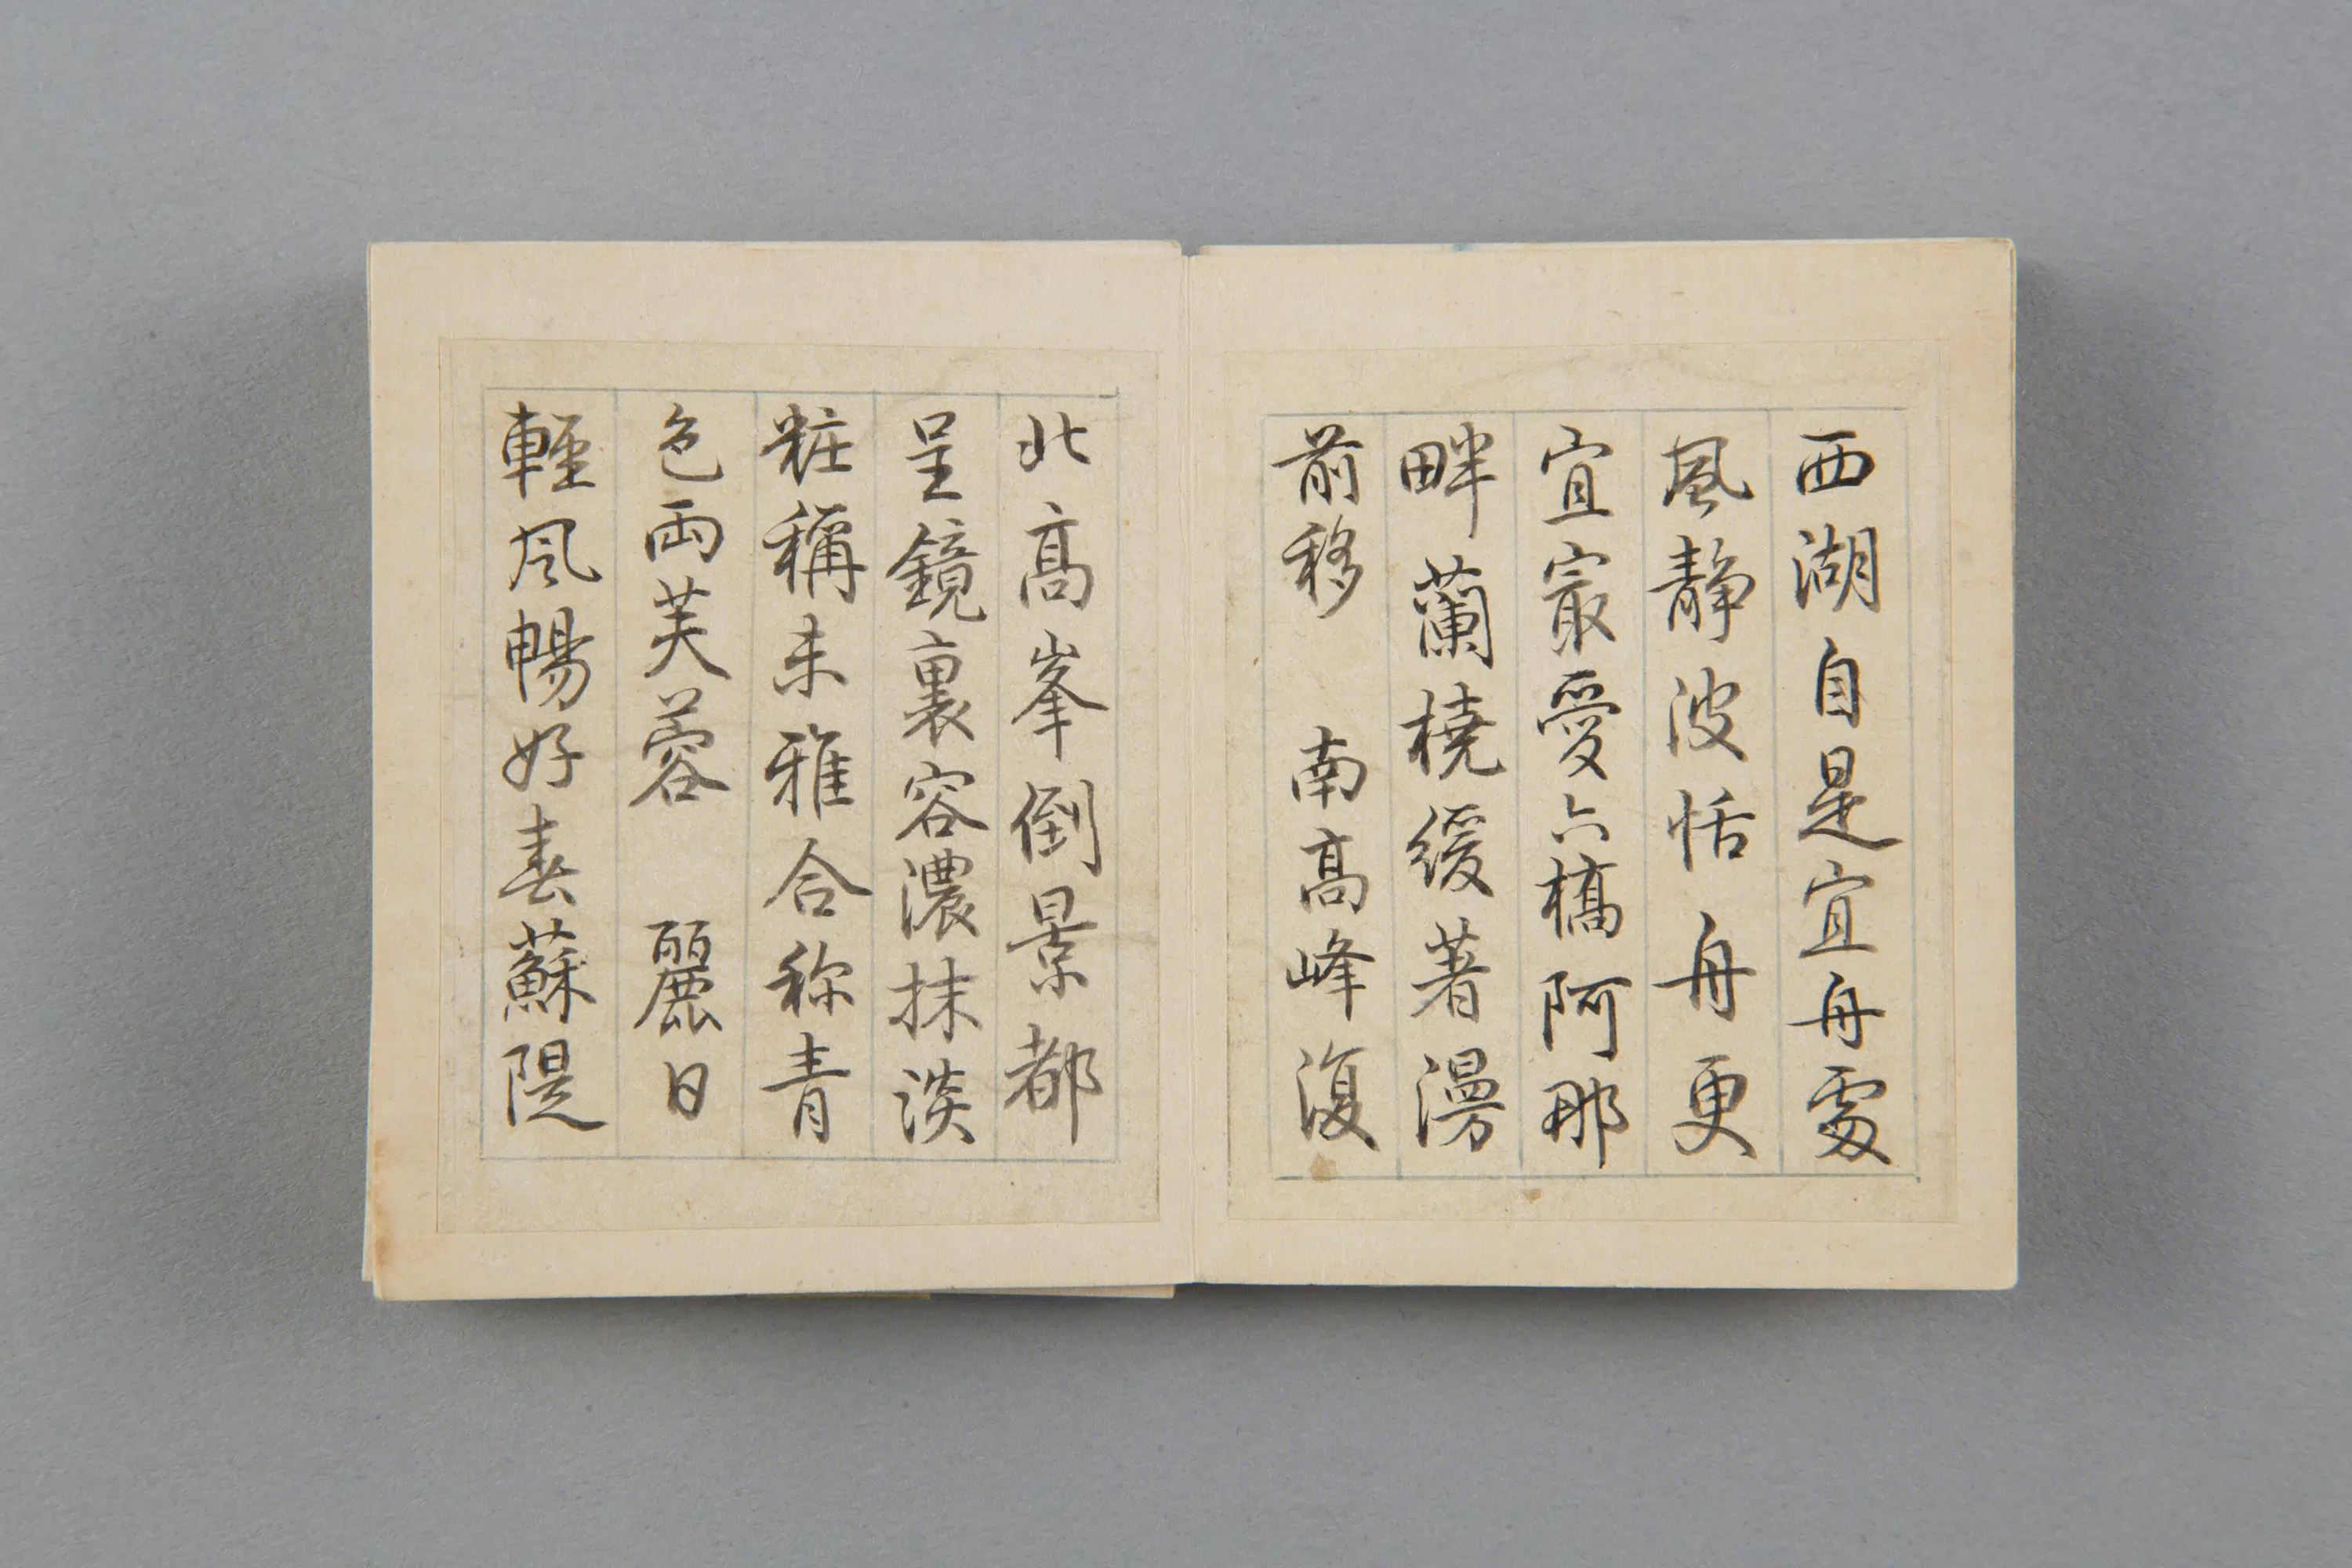 西湖自是宜舟處
風静波恬舟更
宜冣愛六橋阿那
畔蘭橈緩著漫
前移　南高峰復
北高峯倒景都
呈鏡裏容濃抹淡
粧稱未雅合称青
色兩芙蓉　麗日
輕風暢好春蘇隄